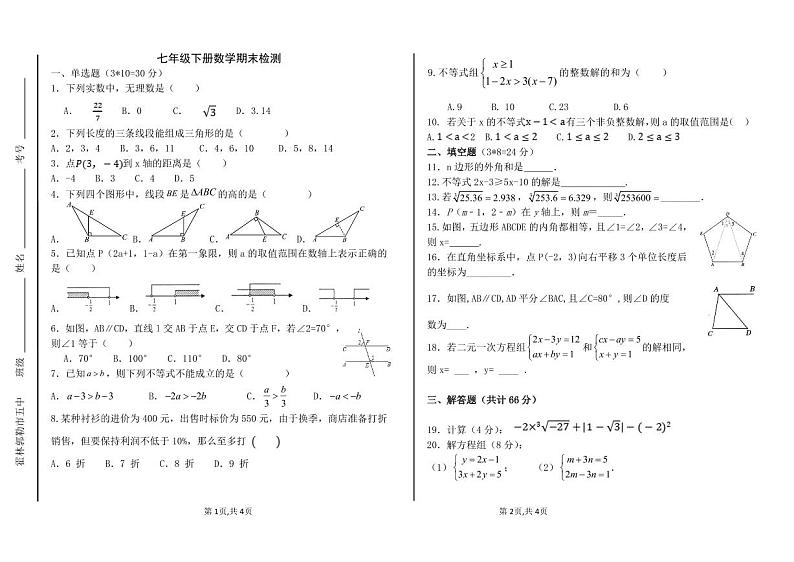 七年级下册数学期末检测
一、单选题（3*10=30 分）
1. 下列实数中，无理数是（　）
A. 22/7　B. 0　C. √3　D. 3.14
2. 下列长度的三条线段能组成三角形的是（　）
A. 2，3，4　B. 3，6，11　C. 4，6，10　D. 5，8，14
3. 点P(3，−4)到 x 轴的距离是（　）
A. -4　B. 4　C. 3　D. 5
4. 下列四个图形中，线段 BE 是 △ABC 的高的是（　）
A.　B.　C.　D.
5. 已知点 P（2a+1，1-a）在第一象限，则 a 的取值范围在数轴上表示正确的
是（　）
A.　B.　C.　D.
6. 如图，AB∥CD，直线 l 交 AB 于点 E，交 CD 于点 F，若∠2=70°，
则∠1 等于（　）
A. 70°　B. 100°　C. 110°　D. 80°
7. 已知 a > b，则下列不等式不能成立的是（　）
A. a−3 > b−3　B. −2a > −2b　C. a/3 > b/3　D. −a < −b
8. 某种衬衫的进价为 400 元，出售时标价为 550 元，由于换季，商店准备打折
销售，但要保持利润不低于 10%，那么至多打（　）
A. 6 折　B. 7 折　C. 8 折　D. 9 折
第 1页,共 4页
霍林郭勒市五中　班级　姓名　考号
9. 不等式组 { x ≥ 1　1−2x > 3(x−7) 的整数解的和为（　）
A. 9　B. 10　C. 23　D. 6
10. 若关于 x 的不等式x−1<a有三个非负整数解，则 a 的取值范围是（　）
A. 1<a<2　B. 1<a≤2　C. 1≤a≤2　D. 2≤a≤3
二、填空题（3*8=24 分）
11. n 边形的外角和是______.
12. 不等式 2x-3≥5x-10 的解是____________.
13. 若 ∛25.36 = 2.938，∛253.6 = 6.329，则 ∛253600 =________.
14. P（m﹣1，2﹣m）在 y 轴上，则 m＝_____.
15. 如图，五边形 ABCDE 的内角都相等，且∠1=∠2，∠3=∠4，
则 x=______.
16. 在直角坐标系中，点 P(-2，3)向右平移 3 个单位长度后
的坐标为________.
17. 如图,AB∥CD,AD 平分∠BAC,且∠C=80°,则∠D 的度
数为____.
18. 若二元一次方程组 { 2x−3y=12　ax+by=1 和 { cx−ay=5　x+y=1 的解相同，
则 x= ___ ，y= ____ .
三、解答题（共计 66 分）
19. 计算（4 分）：−2×∛−27+|1−√3|−(−2)²
20. 解方程组（8 分）：
（1） { y=2x−1　3x+2y=5 ；（2） { m+3n=5　2m−3n=1 .
第 2页,共 4页